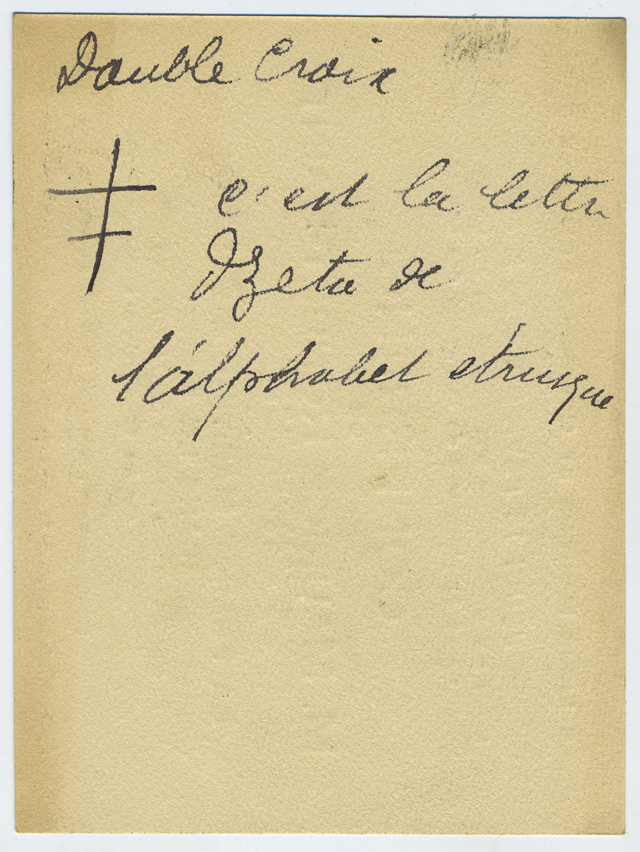 Double Croix
c'est la lettre
Dzeta de
l'alphabet étrusque